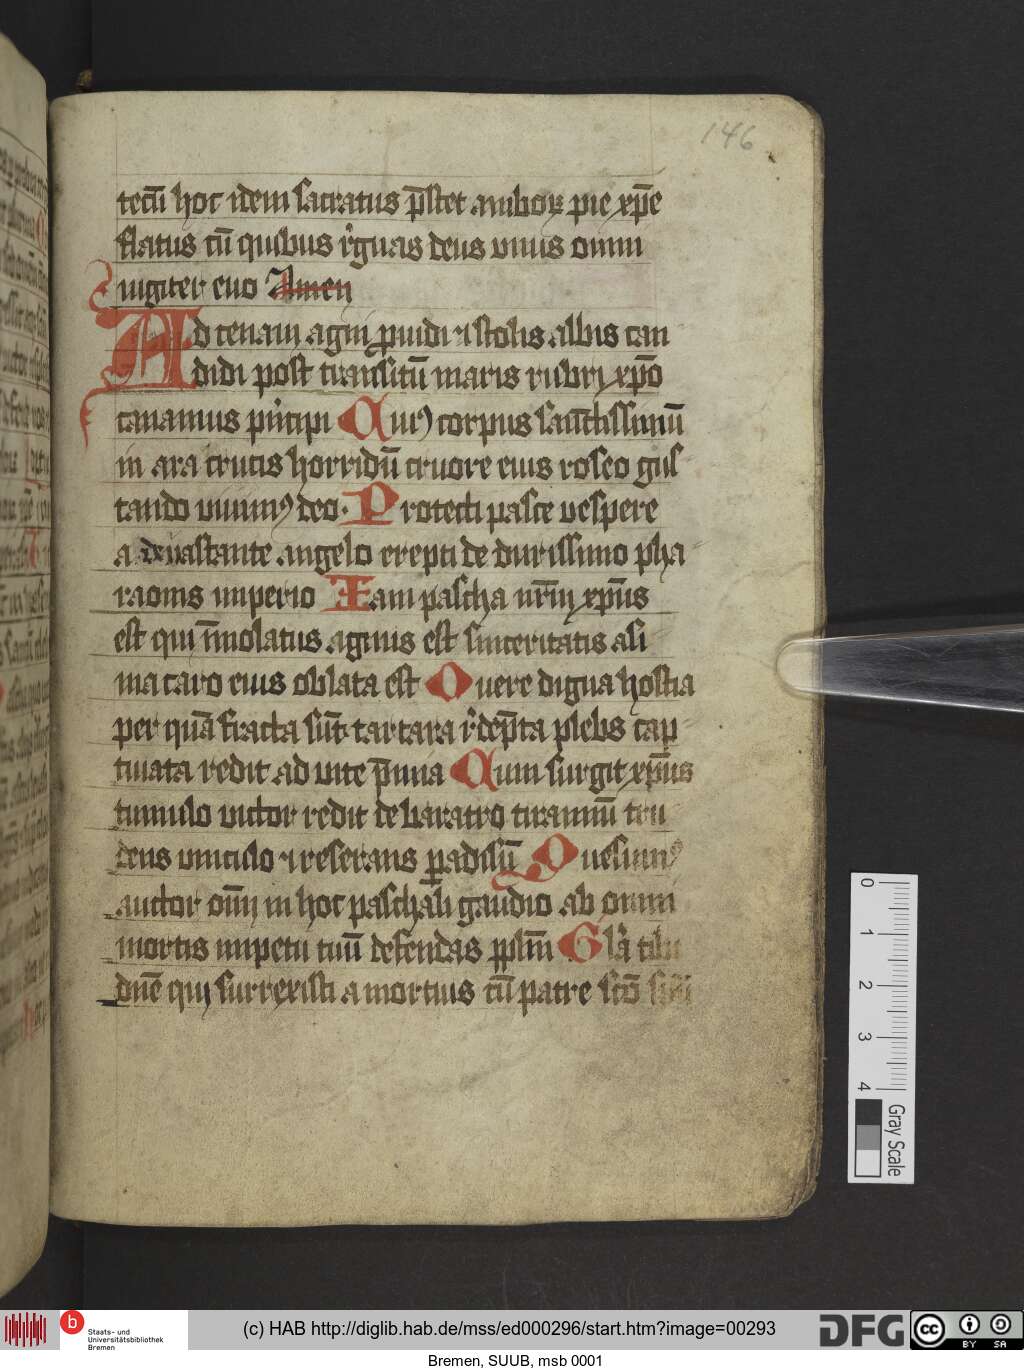 146
tecū hoc idem sacratus p̄stet amboꝝ pie xp̄e
flatus cū quibus rͥgnas deus vnus omni
iugiter euo Amen
Ad cenam agni ꝓuidi ⁊ stolis albis can
didi post transitū maris rubri xp̄o
canamus pͥncipi Cuiꝰ corpus sanctissimū
in ara crucis horridū cruore eius roseo gus
tando viuimꝰ deo. Protecti pasce vespere
a deuastante angelo erepti de durissimo pha
raonis imperio Iam pascha nr̄m xp̄us
est qui īmolatus agnus est sinceritatis asi
ma caro eius oblata est O uere digna hostia
per quā fracta sūt tartara rͥdēpta plebs cap
tiuata redit ad vite p̄mia Cum surgit xp̄us
tumulo victor redit de baratro tirannū tru
dens vinculo ⁊ reserans ꝑadisū Quesumꝰ
auctor om̄i in hoc paschali gaudio ab omni
mortis impetu tuū defendas pplm̄ Glͣa tibi
dn̄e qui surrexisti a mortuis cū patre sc̄o sp̄u
0 1 2 3 4
Gray Scale
b
Staats- und
Universitätsbibliothek
Bremen
(c) HAB http://diglib.hab.de/mss/ed000296/start.htm?image=00293
DFG
cc
BY SA
Bremen, SUUB, msb 0001